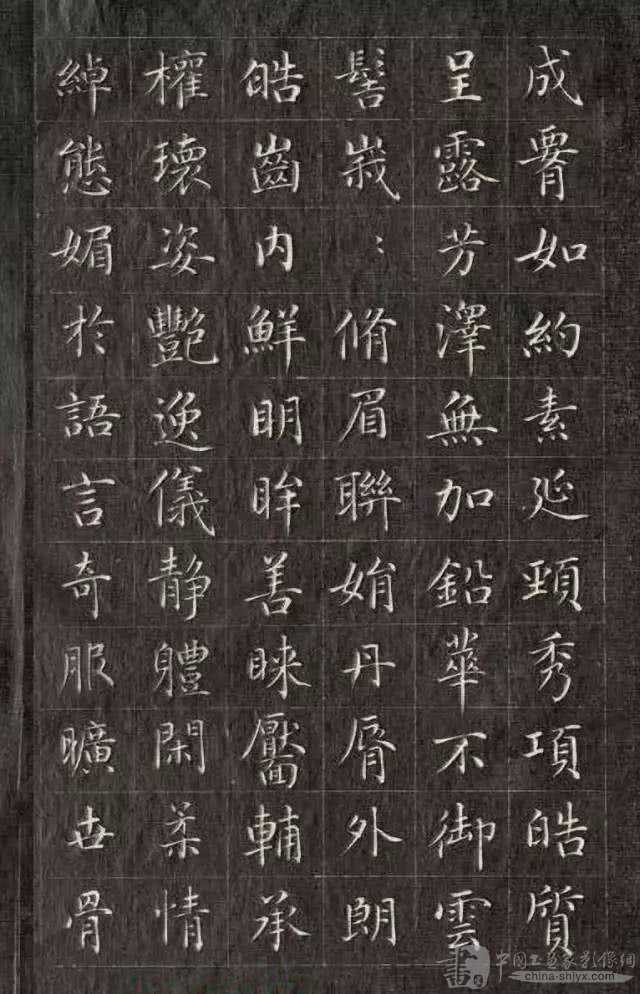 成䏏如約素延頸秀項皓質
呈露芳澤無加鉛華不御雲
髻峩〻脩眉聯娟丹脣外朗
皓齒內鮮明眸善睞靨輔承
權瓌姿艷逸儀靜體閑柔情
綽態媚於語言奇服曠世骨
中國書畫家影像網
china-shjyx.com